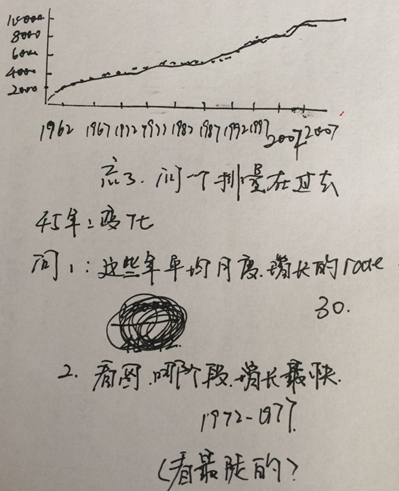 10000
8000
6000
4000
2000
1962 1967 1972 1977 1982 1987 1992 1997 2007 2007
点3. 问一个排量在过去
45年:变化
问1:这些年年均月度.增长的rate
30.
2. 看图.哪个阶段.增长最快.
1972-1977.
(看最陡的?